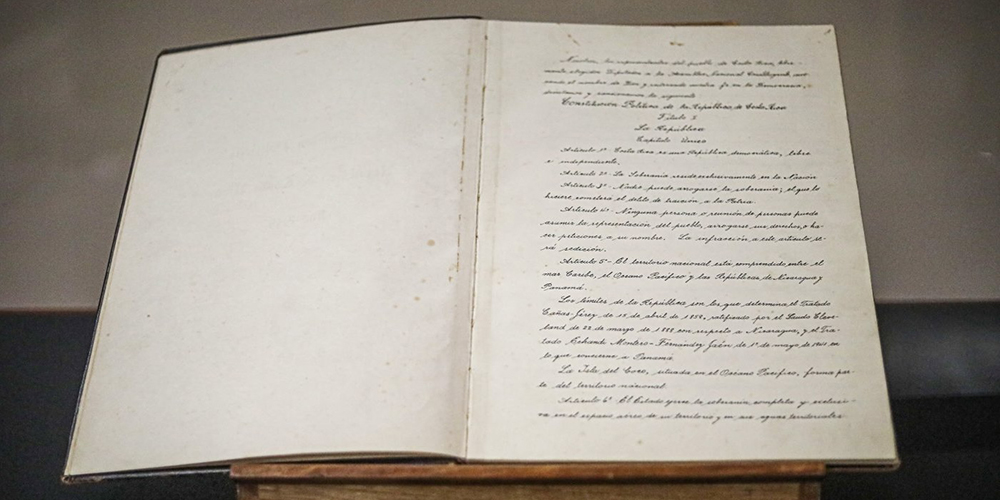 Nosotros, los representantes del pueblo de Costa Rica, libre-
mente elegidos Diputados a la Asamblea Nacional Constituyente, invo-
cando el nombre de Dios y reiterando nuestra fe en la Democracia,
decretamos y sancionamos la siguiente
Constitución Política de la República de Costa Rica
Título I
La República
Capítulo Único
Artículo 1º- Costa Rica es una República democrática, libre
e independiente.
Artículo 2º- La Soberanía reside exclusivamente en la Nación
Artículo 3º- Nadie puede arrogarse la soberanía; el que lo
hiciere cometerá el delito de traición a la Patria.
Artículo 4º- Ninguna persona o reunión de personas puede
asumir la representación del pueblo, arrogarse sus derechos, o ha-
cer peticiones a su nombre. La infracción a este artículo se-
rá sedición.
Artículo 5º- El territorio nacional está comprendido entre el
mar Caribe, el Océano Pacífico y las Repúblicas de Nicaragua y
Panamá.
Los límites de la República son los que determina el Tratado
Cañas-Jérez de 15 de abril de 1858, ratificado por el Laudo Cleve-
land de 22 de marzo de 1888 con respecto a Nicaragua, y el Tra-
tado Echandi Montero-Fernández Jaén de 1º de mayo de 1941 en
lo que concierne a Panamá.
La Isla del Coco, situada en el Océano Pacífico, forma par-
te del territorio nacional.
Artículo 6º- El Estado ejerce la soberanía completa y exclusi-
va en el espacio aéreo de su territorio y en sus aguas territoriales